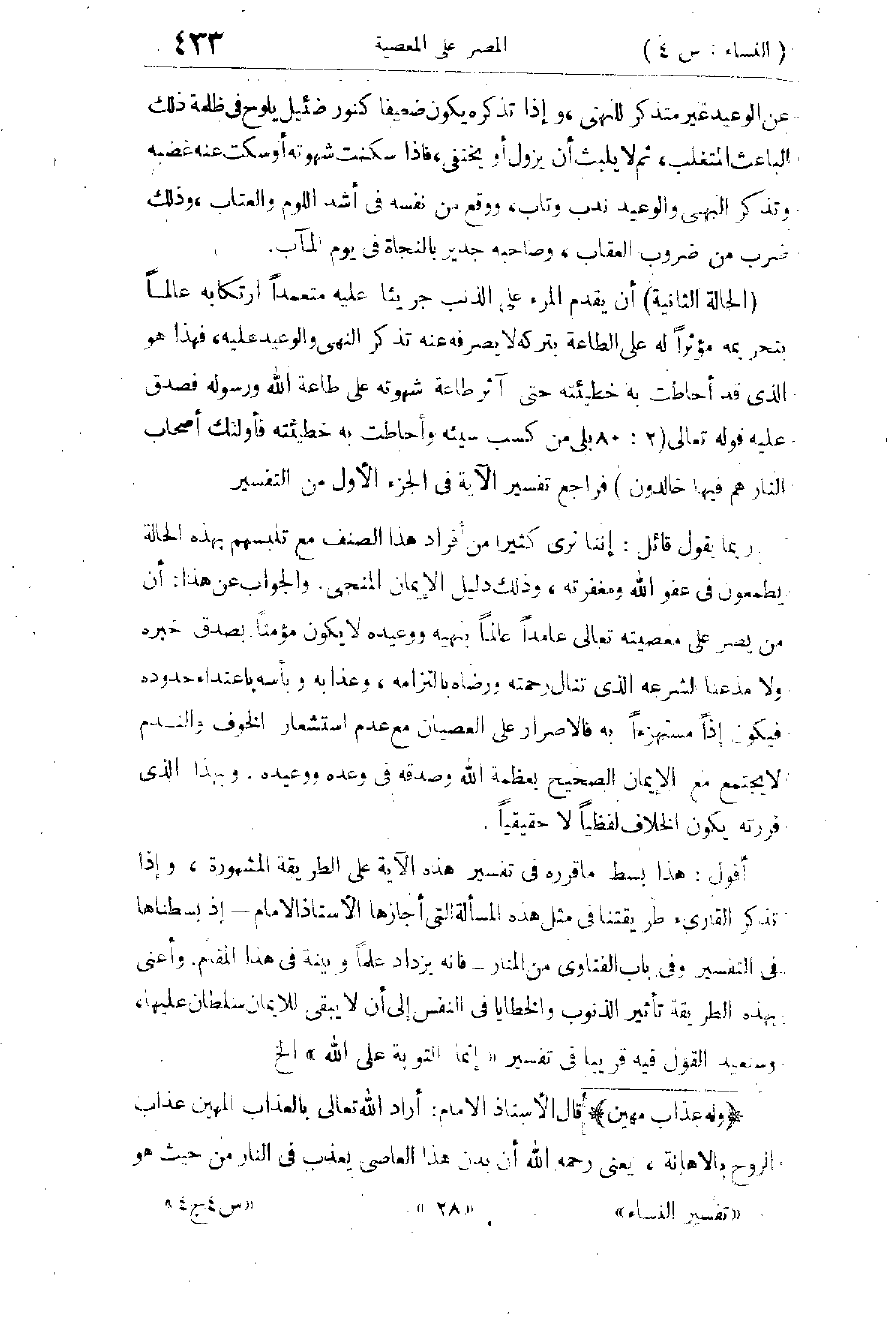 ( النساء : س ٤ ) المصر على المعصية ٤٣٣
عن الوعيد غير متذكر للنهى ، و إذا تذكره يكون ضعيفا كنور ضئيل يلوح فى ظلمة ذلك
الباعث المتغلب ، ثم لا يلبث أن يزول أو يختفى ، فاذا سكنت شهوته أو سكت عنه غضبه
وتذكر النهى والوعيد ندم وتاب ، ووقع من نفسه فى أشد اللوم والعتاب ، وذلك
ضرب من ضروب العقاب ، وصاحبه جدير بالنجاة فى يوم المآب .
(الحالة الثانية) أن يقدم المرء على الذنب جريئا عليه متعمداً ارتكابه عالمـاً
بتحريمه مؤثراً له على الطاعة بتركه لا يصرفه عنه تذكر النهى والوعيد عليه ، فهذا هو
الذى قد أحاطت به خطيئته حتى آثر طاعة شهوته على طاعة الله ورسوله فصدق
عليه قوله تعالى ( ٢ : ٨٠ بلى من كسب سيئة وأحاطت به خطيئته فأولئك أصحاب
النار هم فيها خالدون ) فراجع تفسير الآية فى الجزء الأول من التفسير
ربما يقول قائل : إننا نرى كثيرا من أفراد هذا الصنف مع تلبسهم بهذه الحالة
يطمعون فى عفو الله ومغفرته ، وذلك دليل الإيمان المنجى . والجواب عن هذا : أن
من يصر على معصيته تعالى عامداً عالماً بنهيه ووعيده لا يكون مؤمناً بصدق خبره
ولا مذعنا لشرعه الذى تنال رحمته ورضاه بالتزامه ، وعذابه و بأسه باعتداء حدوده
فيكون إذاً مستهزءاً به فالاصرار على العصيان مع عدم استشعار الخوف والنـدم
لا يجتمع مع الإيمان الصحيح بعظمة الله وصدقه فى وعده ووعيده . وبهذا الذى
قررته يكون الخلاف لفظياً لا حقيقياً .
أقول : هذا بسط ماقرره فى تفسير هذه الآية على الطريقة المشهورة ، و إذا
تذكر القارىء طريقتنا فى مثل هذه المسألة التى أجازها الأستاذ الامام — إذ بسطناها
فى التفسير وفى باب الفتاوى من المنار — فانه يزداد علماً و بينة فى هذا المقام . وأعنى
بهذه الطريقة تأثير الذنوب والخطايا فى النفس إلى أن لا يبقى للايمان سلطان عليها ،
وسنعيد القول فيه قريبا فى تفسير « إنما التوبة على الله » الخ
﴿وله عذاب مهين﴾ قال الأستاذ الامام : أراد الله تعالى بالعذاب المهين عذاب
الروح بالاهانة ، يعنى رحمه الله أن بدن هذا العاصى يعذب فى النار من حيث هو
«تفسير النساء» «٢٨» «س ٤ ج ٤»